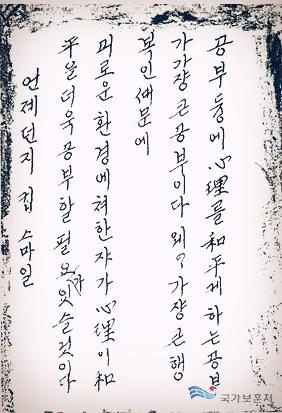 공부 등에 心理를 和平케 하는 공부
가 가쟝 큰 공부이다 왜? 가쟝 큰 행
복인 때문에
괴로운 환경에 쳐한 쟈가 心理의 和
平을 더욱 공부할 필요가 잇슬 것이다
언제던지 킵 스마일
국가보훈처